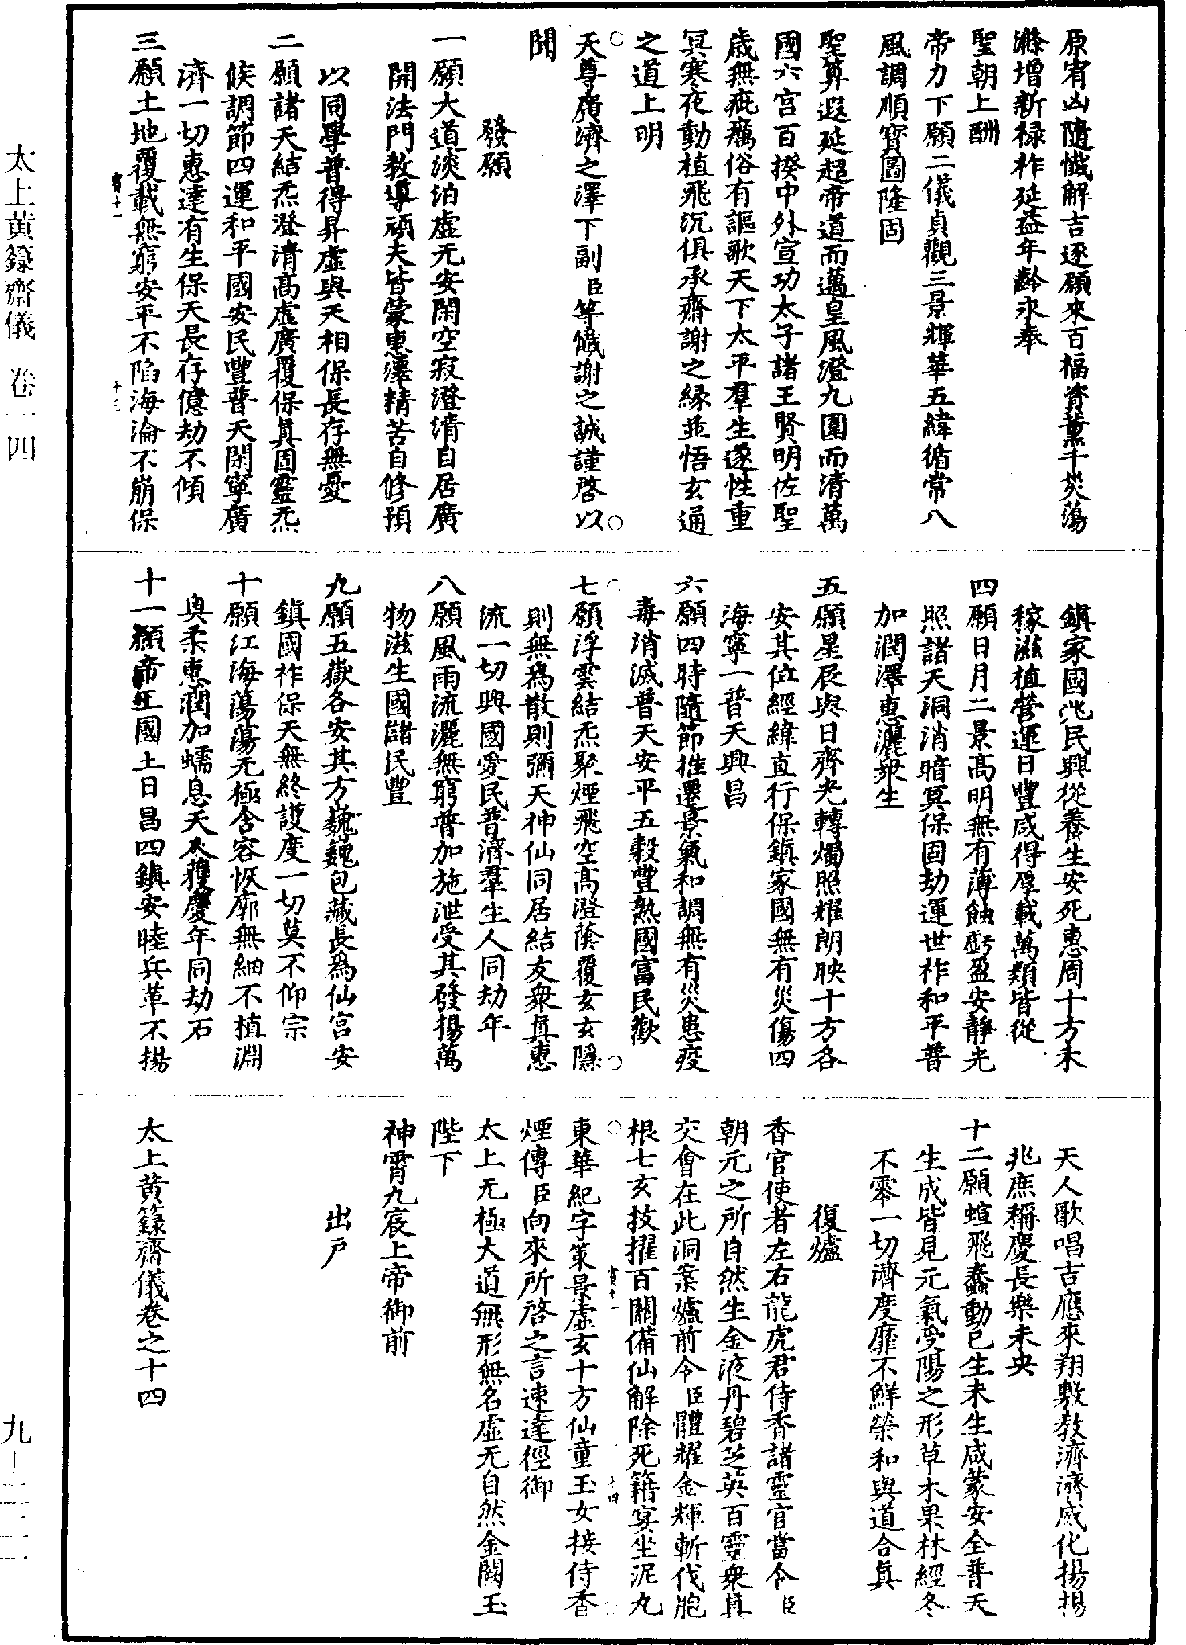 原宥凶隨懺解吉逐願來百福資薰千災蕩
滌增新祿祚延益年齡永奉
聖朝上酬
帝力下願二儀貞觀三景輝華五緯循常八
風調順寶圖隆固
聖筭遐延超帝道而邁皇風澄九圍而清萬
國六宮百揆中外宣功太子諸王賢明佐聖
歲無疵癘俗有謳歌天下太平羣生遂性重
冥寒夜動植飛沉俱承齋謝之緣並悟玄通
之道上明
天尊廣濟之澤下副臣等懺謝之誠謹啓以
聞
發願
一願大道淡泊虛无安閑空寂澄清自居廣
開法門教導頑夫皆蒙惠澤精苦自修預
以同學普得昇虛與天相保長存無憂
二願諸天結炁澄清高虛廣覆保真固靈炁
候調節四運和平國安民豐普天閑寧廣
濟一切惠達有生保天長存億劫不傾
三願土地覆載無窮安平不陷海淪不崩保
鎮家國兆民興從養生安死惠周十方禾
稼滋植營運日豐咸得厚載萬類皆從
四願日月二景高明無有薄蝕虧盈安靜光
照諸天洞消暗冥保固劫運世祚和平普
加潤澤惠灑衆生
五願星辰與日齊光轉燭照耀朗映十方各
安其位經緯直行保鎮家國無有災傷四
海寧一普天興昌
六願四時隨節推遷景氣和調無有災患疫
毒消滅普天安平五穀豐熟國富民歡
七願浮雲結炁聚煙飛空高澄蔭覆玄玄隱
則無爲散則彌天神仙同居結友衆真惠
流一切興國愛民普濟羣生人同劫年
八願風雨流灑無窮普加施泄受其發揚萬
物滋生國儲民豐
九願五嶽各安其方巍巍包藏長爲仙宮安
鎮國祚保天無終護度一切莫不仰宗
十願江海蕩蕩无極含容恢廓無細不植淵
奧柔惠潤加蠕息天人獲慶年同劫石
十一願帝王國土日昌四鎮安睦兵革不揚
天人歌唱吉應來翔敷教濟濟咸化揚揚
兆庶稱慶長樂未央
十二願蝖飛蠢動已生未生咸蒙安全普天
生成皆見元氣受陽之形草木果林經冬
不零一切濟度靡不鮮榮和與道合真
復爐
香官使者左右龍虎君侍香諸靈官當令臣
朝元之所自然生金液丹碧芝英百靈衆真
交會在此洞案爐前令臣體耀金輝斬伐胞
根七玄技擢百關備仙解除死籍冥坐泥丸
東華紀字策景虛玄十方仙童玉女接侍香
煙傳臣向來所啓之言速達徑御
太上无極大道無形無名虛无自然金闕玉
陛下
神霄九宸上帝御前
出戶
太上黃籙齋儀卷之十四
太上黃籙齋儀 卷一四
九-二二二